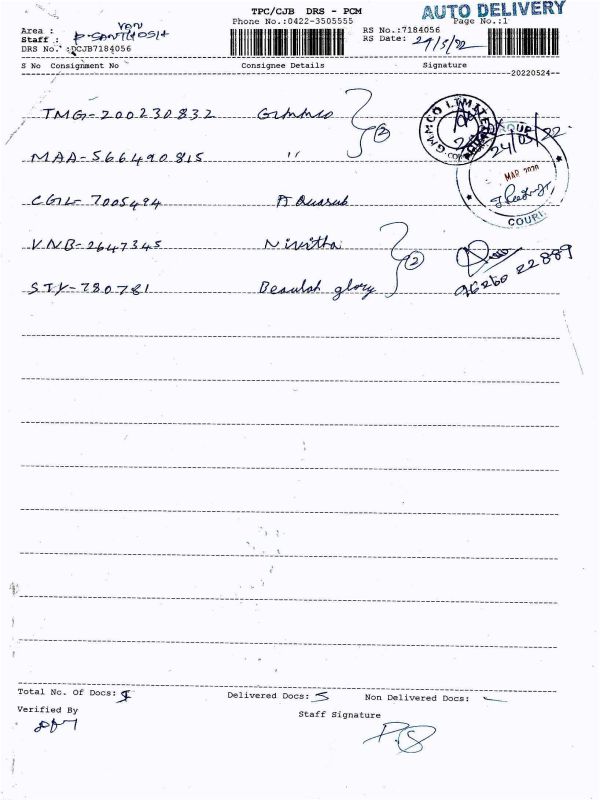 TPC/CJB DRS - PCM
AUTO DELIVERY
Phone No.:0422-3505555
Page No.:1
Area : VAN
RS No.:7184056
Staff : P-SANTHOSH
RS Date: 24/5/22
DRS No. :DCJB7184056
S No Consignment No Consignee Details Signature
20220524
TMG-200230832 Gmmco } 2
MAA-566490815 "
GMMCO LIMITED
24/05/22
MAR 2020
COURI
CGIL-7005494
VNB-2647345 Nivitha } 2
STY-780781 Beaulah glory
96260 22889
Total No. Of Docs: 5 Delivered Docs: 5 Non Delivered Docs: -
Verified By
Staff Signature